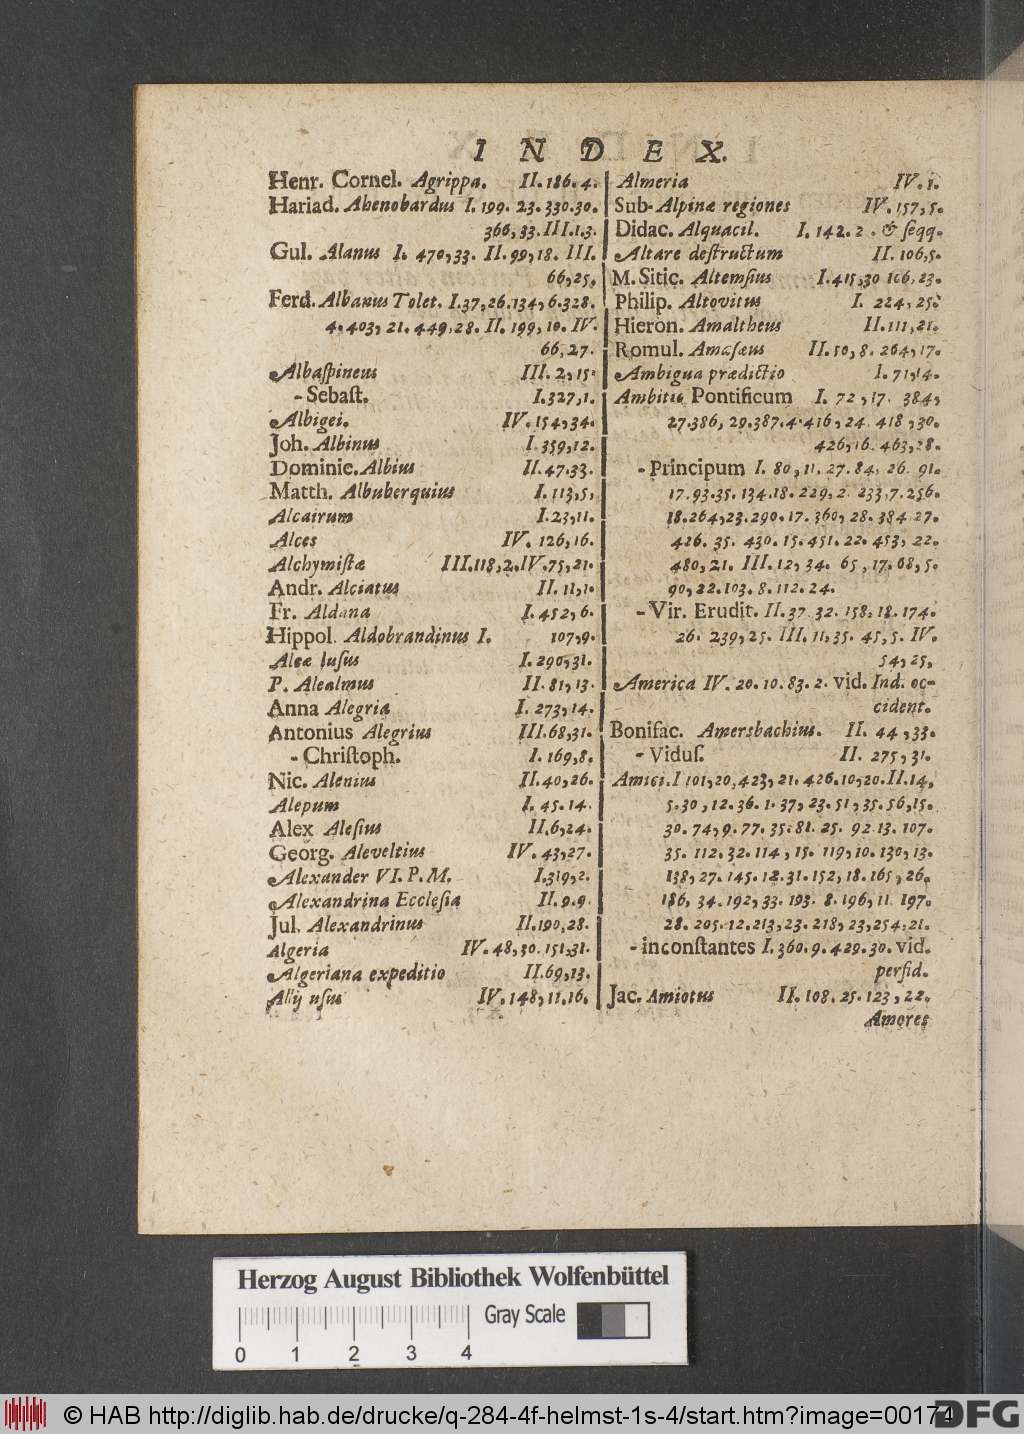 INDEX.
Henr. Cornel. Agrippa. II. 186. 4.
Hariad. Ahenobardus I. 199. 23. 330. 30.
366, 33. III. 1. 3.
Gul. Alanus I. 470, 33. II. 99, 18. III.
66, 25.
Ferd. Albanus Tolet. I. 37, 26. 134, 6. 328.
4. 403, 21. 449, 28. II. 199, 10. IV.
66, 27.
Albaſpineus III. 2, 15.
- Sebaſt. I. 327, 1.
Albigei. IV. 154, 34.
Joh. Albinus I. 359, 12.
Dominic. Albius II. 47. 33.
Matth. Albuberquius I. 113, 5,
Alcairum I. 23, 11.
Alces IV. 126, 16.
Alchymiſtæ III. 118, 2. IV. 75, 21.
Andr. Alciatus II. 11, 1.
Fr. Aldana I. 452, 6.
Hippol. Aldobrandinus I. 107, 9.
Aleæ luſus I. 290, 31.
P. Alealmus II. 81, 13.
Anna Alegria I. 273, 14.
Antonius Alegrius III. 68, 31.
- Chriſtoph. I. 169, 8.
Nic. Alenius II. 40, 26.
Alepum I. 45. 14.
Alex Aleſius II. 6, 24.
Georg. Aleveltius IV. 43, 27.
Alexander VI. P. M. I. 319, 2.
Alexandrina Eccleſia II. 9. 9.
Jul. Alexandrinus II. 190, 28.
Algeria IV. 48, 30. 151, 31.
Algeriana expeditio II. 69, 13.
Alij uſus IV. 148, 11. 16.
Almeria IV. 1.
Sub-Alpinæ regiones IV. 157, 5.
Didac. Alquacil. I. 142. 2. & ſeqq.
Altare deſtructum II. 106, 5.
M. Sitic. Altemſius I. 415, 30 166, 23.
Philip. Altovitus I. 224, 25.
Hieron. Amaltheus II. 111, 21.
Romul. Amaſæus II. 50, 8. 264, 17.
Ambigua prædictio I. 71, 14.
Ambitio Pontificum I. 72, 17. 384,
27. 386, 29. 387. 4. 416, 24. 418, 30.
426, 16. 463, 28.
- Principum I. 80, 11. 27. 84, 26. 91.
17. 93. 35. 134. 18. 229, 2. 233, 7. 256.
18. 264, 23. 290. 17. 360, 28. 384 27.
426. 35. 430. 15. 451. 22. 453, 22.
480, 21. III. 12, 34. 65, 17. 68, 5.
90, 22. 103. 8. 112. 24.
- Vir. Erudit. II. 37. 32. 158. 18. 174.
26. 239, 25. III. 11, 35. 45, 5. IV.
54, 25,
America IV. 20. 10. 83. 2. vid. Ind. oc-
cident.
Bonifac. Amersbachius. II. 44, 33.
- Viduſ. II. 275, 31.
Amici. I 101, 20, 423, 21. 426. 10, 20. II. 14,
5. 30, 12. 36. 1. 37, 23. 51, 35. 56, 15.
30. 74, 9. 77. 35. 81. 25. 92 13. 107.
35. 112. 32. 114, 15. 119, 10. 130, 13.
138, 27. 145. 12. 31. 152, 18. 165, 26.
186, 34. 192, 33. 193. 8. 196, 11. 197.
28. 205. 12. 213, 23. 218, 23, 254, 21.
- inconſtantes I. 360. 9. 429. 30. vid.
perfid.
Jac. Amiotus II. 108. 25. 123, 22.
Amores
Herzog August Bibliothek Wolfenbüttel
Gray Scale
0 1 2 3 4
© HAB http://diglib.hab.de/drucke/q-284-4f-helmst-1s-4/start.htm?image=00174
DFG